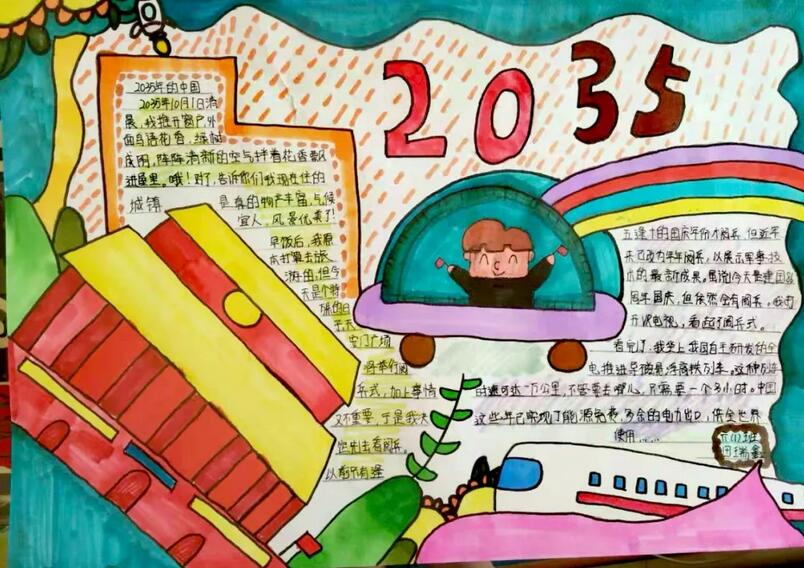 2035
2035年的中国
2035年10月1日清
晨，我推开窗户，外
面鸟语花香，绿树
成阴，阵阵清新的空气拌着花香飘
进屋里。哦！对了，告诉你们我现在住的
城镇是真的物产丰富，气候
宜人，风景优美了！
早饭后，我原
本打算去旅
游的，但今
天是个特
殊的日
子天
安门广场
将举行阅
兵式，加上事情
又不重要，于是我决
定先去看阅兵。
以前只有逢
五逢十的国庆年份才阅兵，但近年
来已改为半年阅兵，以展示军事技
术的最新成果。虽说今天是建国86
周年国庆，但依然会有阅兵。我打
开电视，看起了阅兵式。
看完了，我坐上我国自主研发的全
电推进导磁悬浮高铁列车。这种列车
时速可达一万公里，不管要去哪儿，只需要一个多小时。中国
这些年已实现了能源免费，多余的电力出口，供全世界
使用……